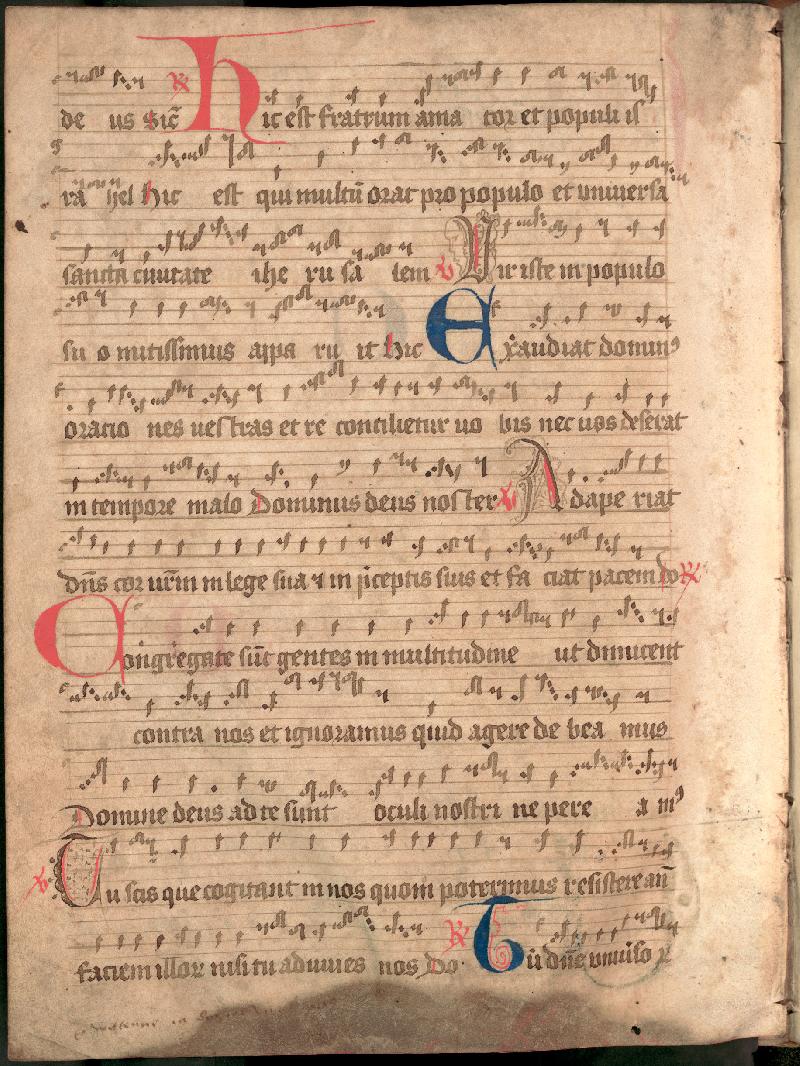 de us Sic̄ Hic est fratrum ama tor et populi is
ra hel Hic est qui multū orat pro populo et universa
sancta civitate ihe ru sa lem Vir iste in populo
su o mitissimus appa ru it Hic Exaudiat dominꝰ
oracio nes vestras et re concilietur vo bis nec vos deserat
in tempore malo Dominus deus noster Adape riat
dn̄s cor vr̄m in lege sua ⁊ in p̄ceptis suis et fa ciat pacem Do
Congregate sūt gentes in multitudine ut dimicent
contra nos et ignoramus quid agere de bea mus
Domine deus ad te sunt oculi nostri ne pere a mꝰ
Tu scis que cogitant in nos quom poterimus resistere an̄
faciem illoꝝ nisi tu adiuves nos Do Tū dn̄e univ̄soꝝ